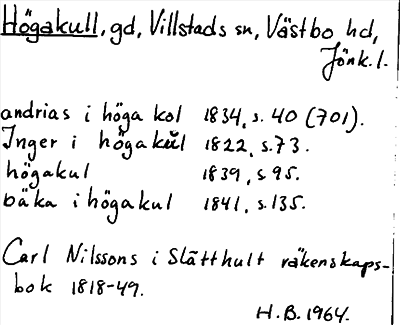 Högakull, gd, Villstads sn, Västbo hd,
Jönk. l.
andrias i höga kol 1834, s. 40 (701).
Inger i högakŭl 1822, s. 73.
högakul 1839, s 95.
bäka i högakul 1841, s. 135.
Carl Nilssons i Slätthult räkenskaps-
bok 1818-49.
H. B. 1964.